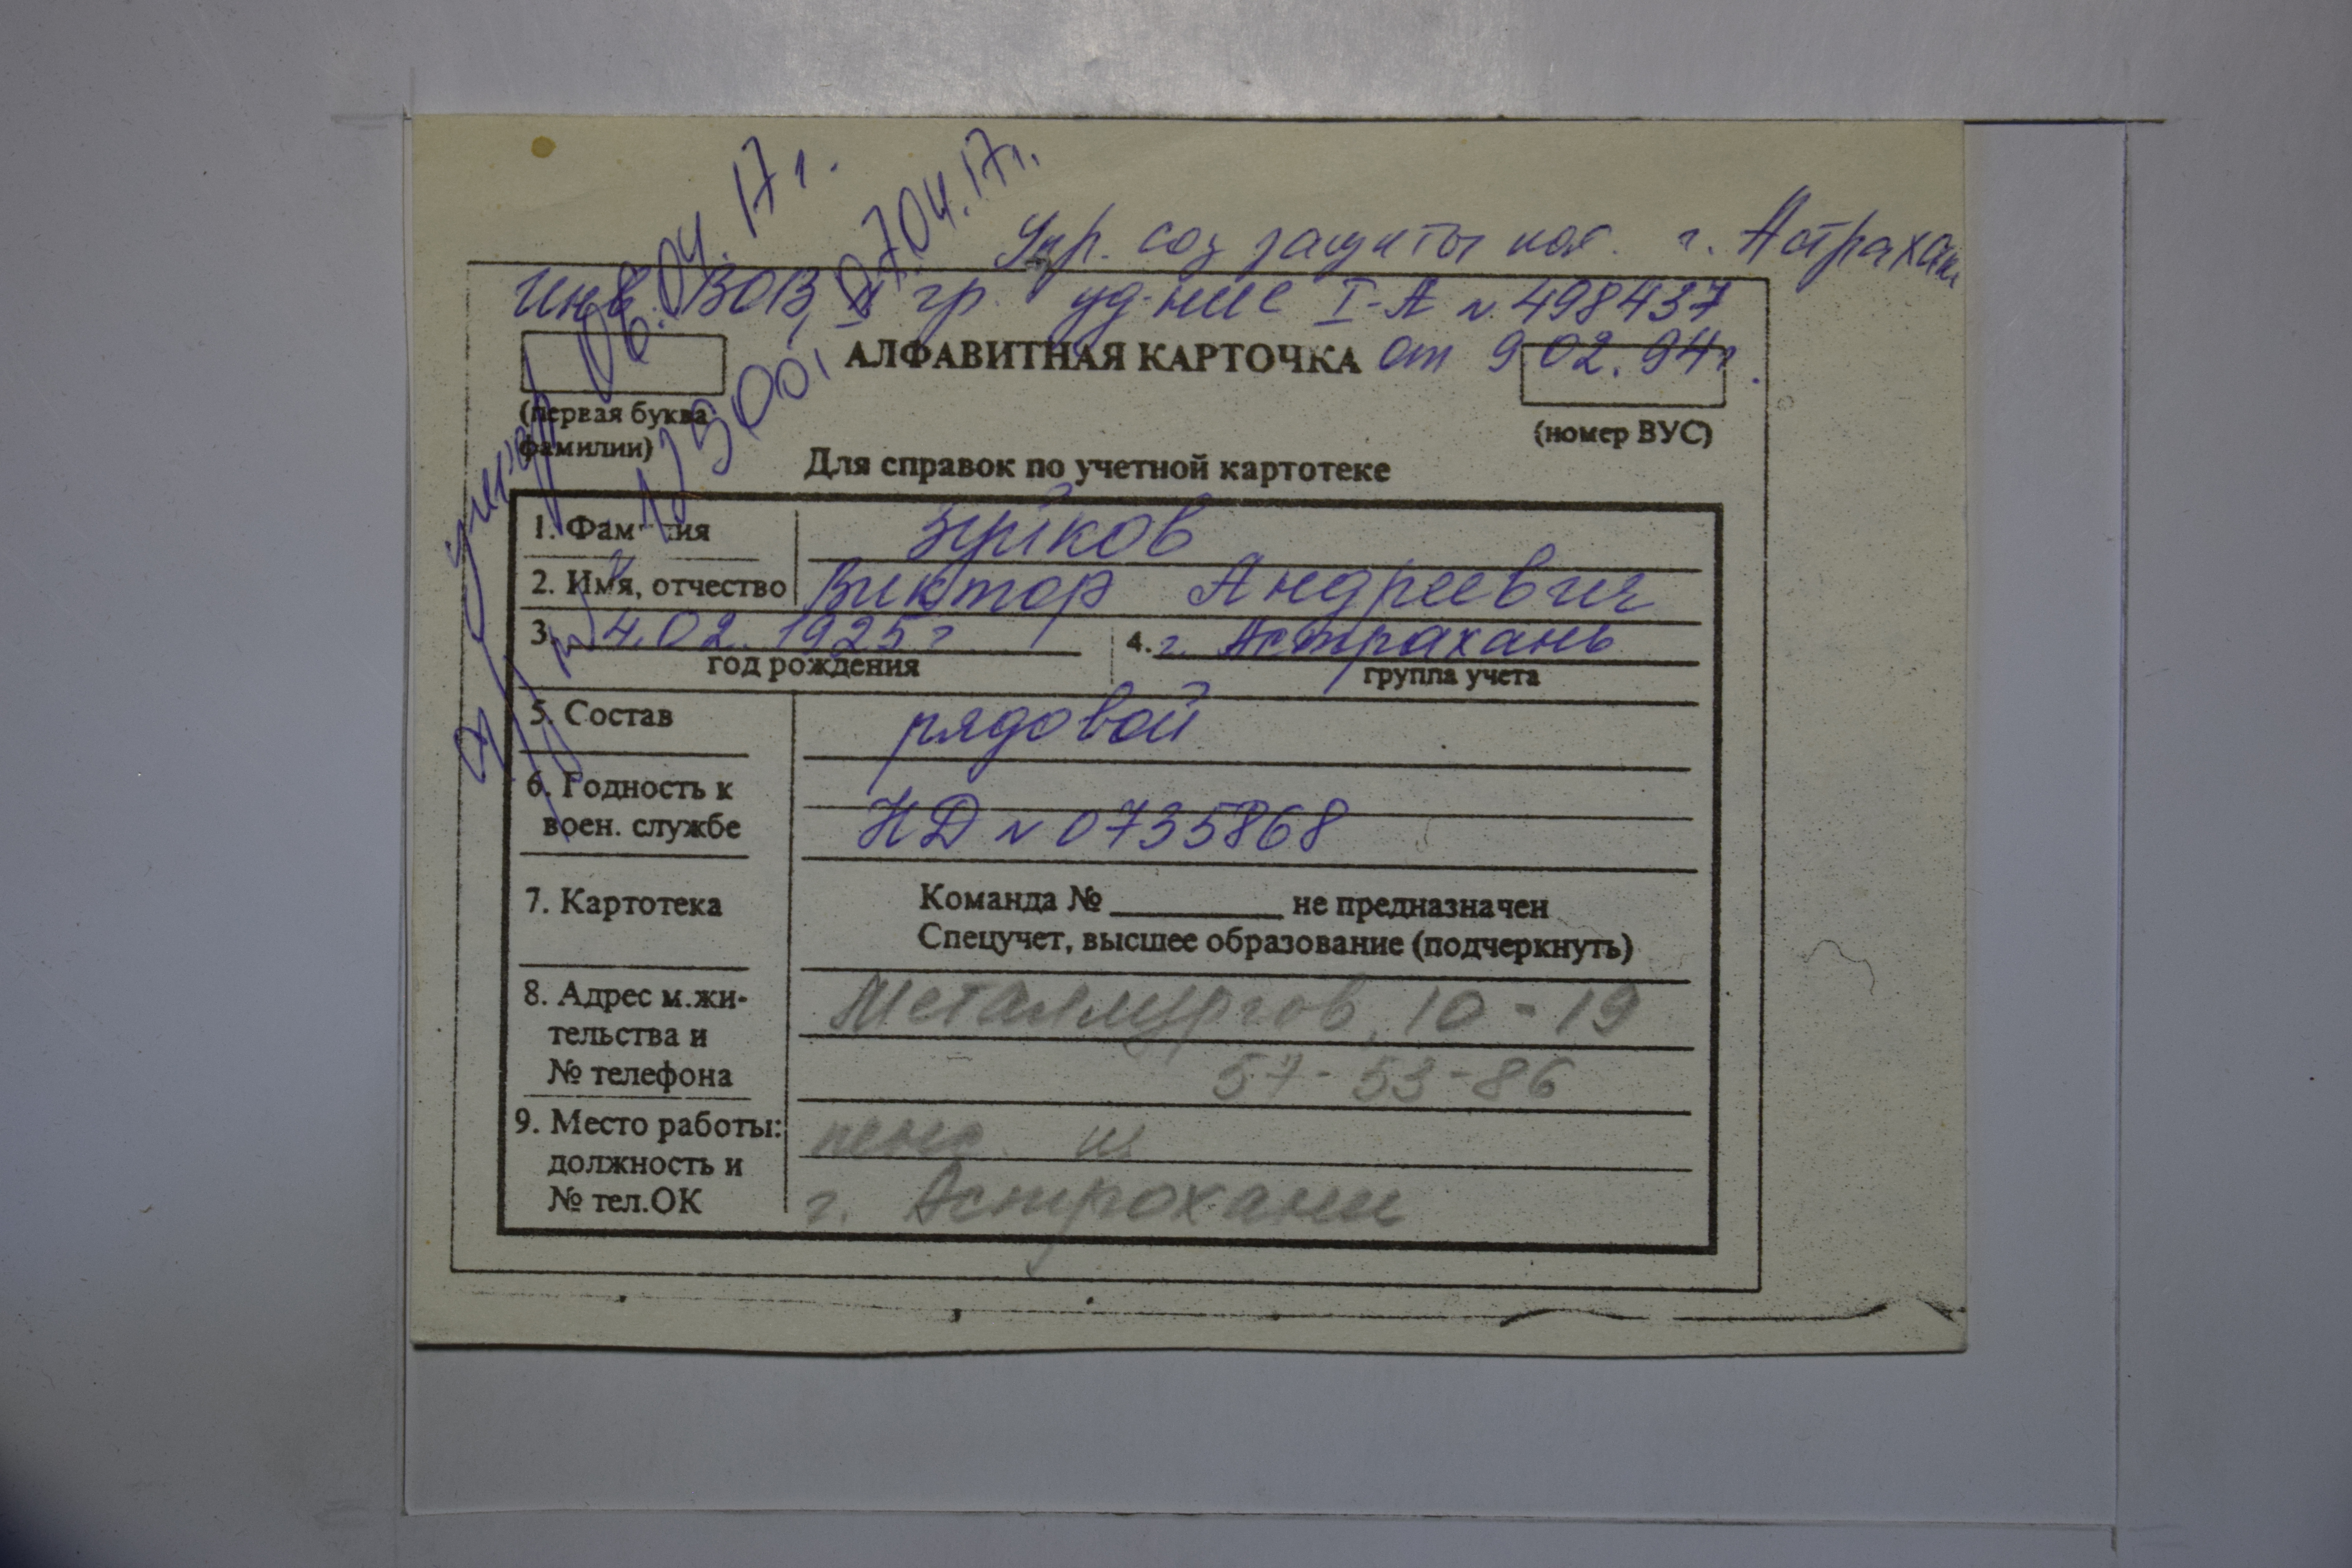 06.04.17г.
07.04.17г.
Упр. соц защиты нас. г. Астрахан
Инв. ВОВ, II гр. уд-ние I-А № 498437
АЛФАВИТНАЯ КАРТОЧКА от 9.02.94г.
(первая буква
фамилии)
(номер ВУС)
Для справок по учетной картотеке
1. Фамилия Зуйков
2. Имя, отчество Виктор Андреевич
3. 4.02.1925г 4. г. Астрахань
год рождения группа учета
5. Состав рядовой
6. Годность к
воен. службе НД № 0735868
7. Картотека Команда № ______ не предназначен
Спецучет, высшее образование (подчеркнуть)
8. Адрес м.жи- Металлургов, 10-19
тельства и
№ телефона 57-53-86
9. Место работы: пенс. из
должность и
№ тел.ОК г. Астрохани